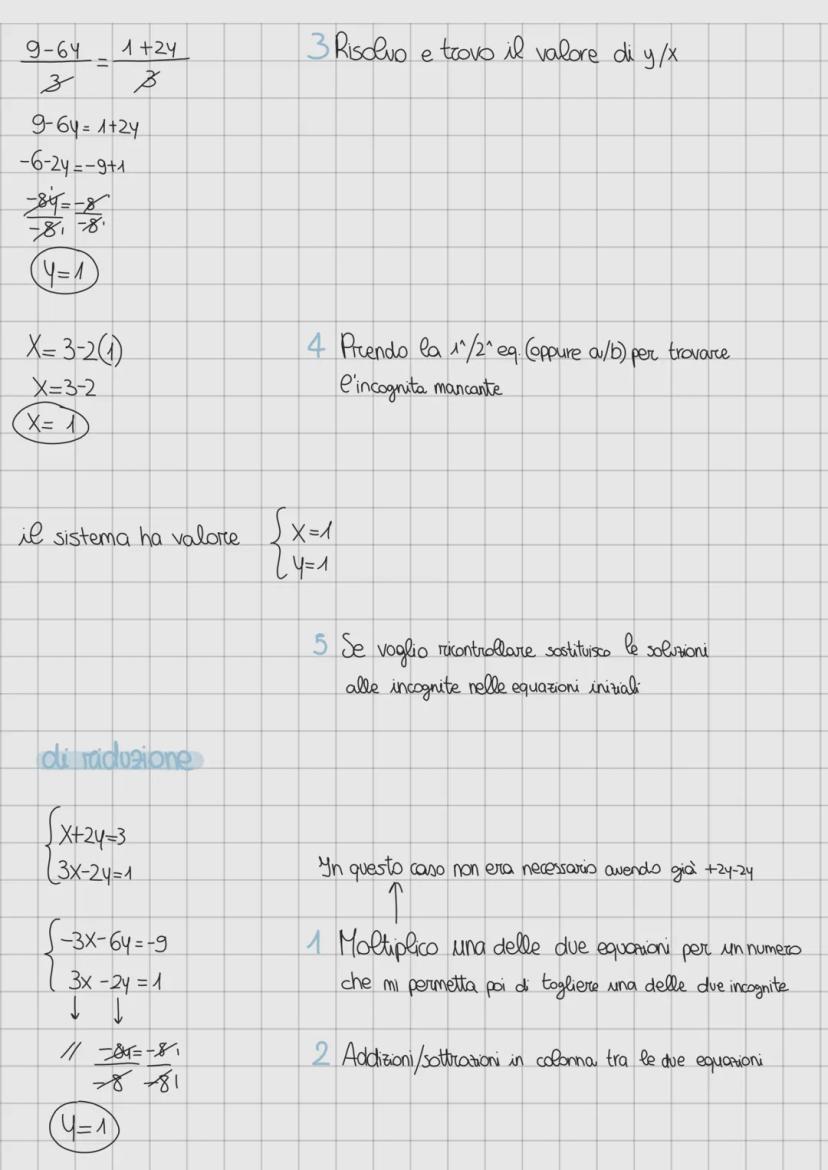 9-6y/3 = 1+2y/3
3 Risolvo e trovo il valore di y/x
9-6y = 1+2y
-6-2y=-9+1
-8y/-8 = -8/-8
y=1
X= 3-2(1)
4 Prendo la 1^/2^ eq. (oppure a/b) per trovare
X=3-2
l'incognita mancante
X= 1
il sistema ha valore { X=1
y=1
5 Se voglio ricontrollare sostituisco le soluzioni
alle incognite nelle equazioni iniziali
di riduzione
{ X+2y=3
3X-2y=1
In questo caso non era necessario avendo già +2y-2y
↑
{ -3X-6y=-9
1 Moltiplico una delle due equazioni per un numero
3x -2y = 1
che mi permetta poi di togliere una delle due incognite
↓ ↓
// -8y/-8 = -8/-8
2 Addizioni/sottrazioni in colonna tra le due equazioni
y=1